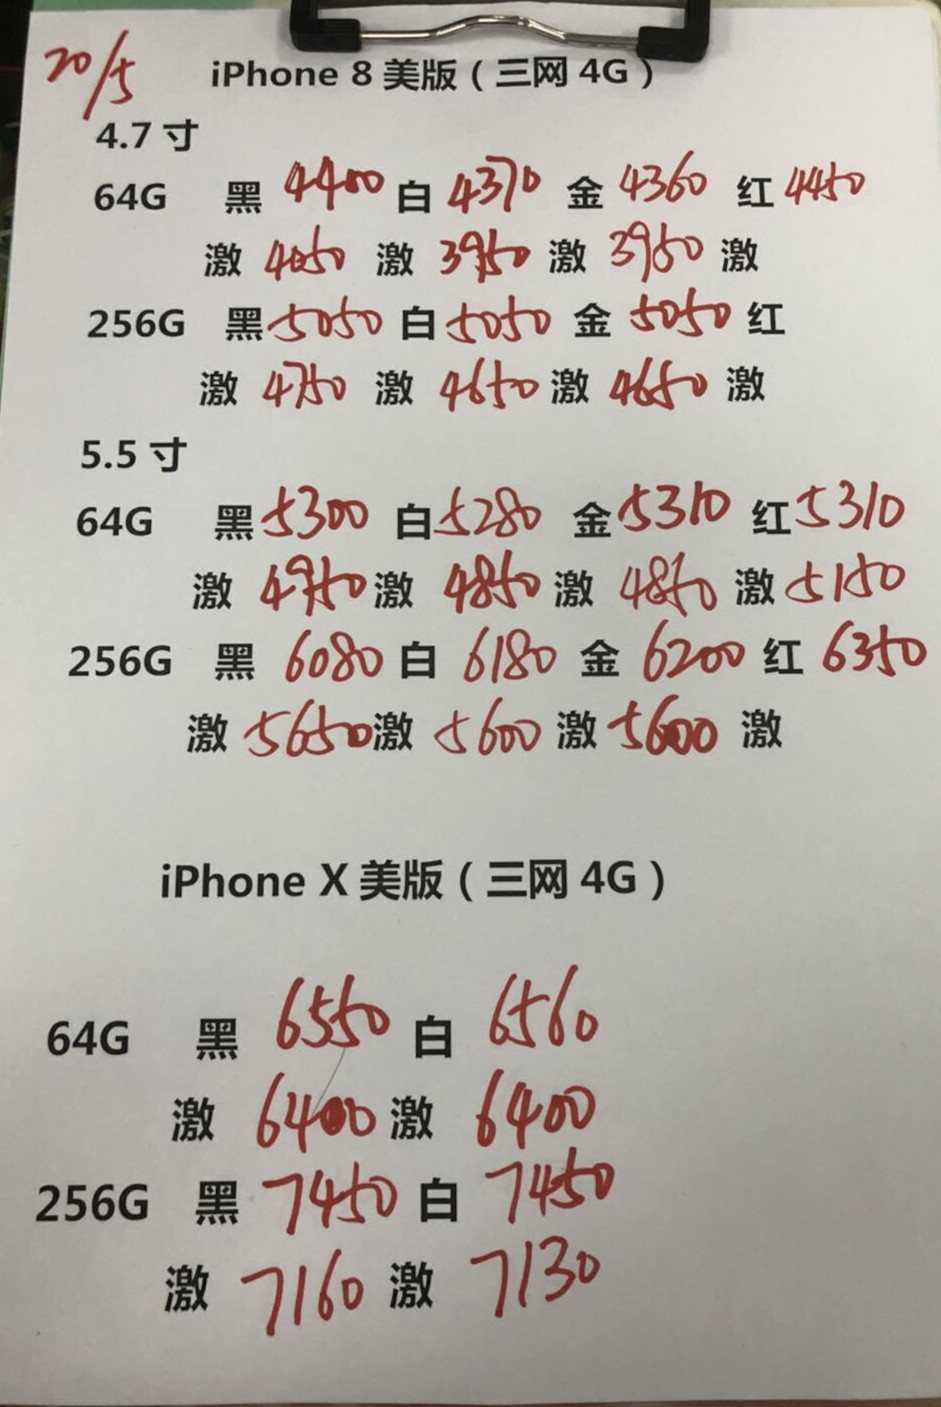 20/5 iPhone 8 美版（三网 4G）
4.7 寸
64G 黑 4400 白 4370 金 4360 红 4450
激 4050 激 3950 激 3950 激
256G 黑 5050 白 5050 金 5050 红
激 4750 激 4650 激 4650 激
5.5 寸
64G 黑 5300 白 5280 金 5310 红 5310
激 4950 激 4850 激 4850 激 5150
256G 黑 6080 白 6180 金 6200 红 6350
激 5650 激 5600 激 5600 激
iPhone X 美版（三网 4G）
64G 黑 6550 白 6560
激 6400 激 6400
256G 黑 7450 白 7450
激 7160 激 7130